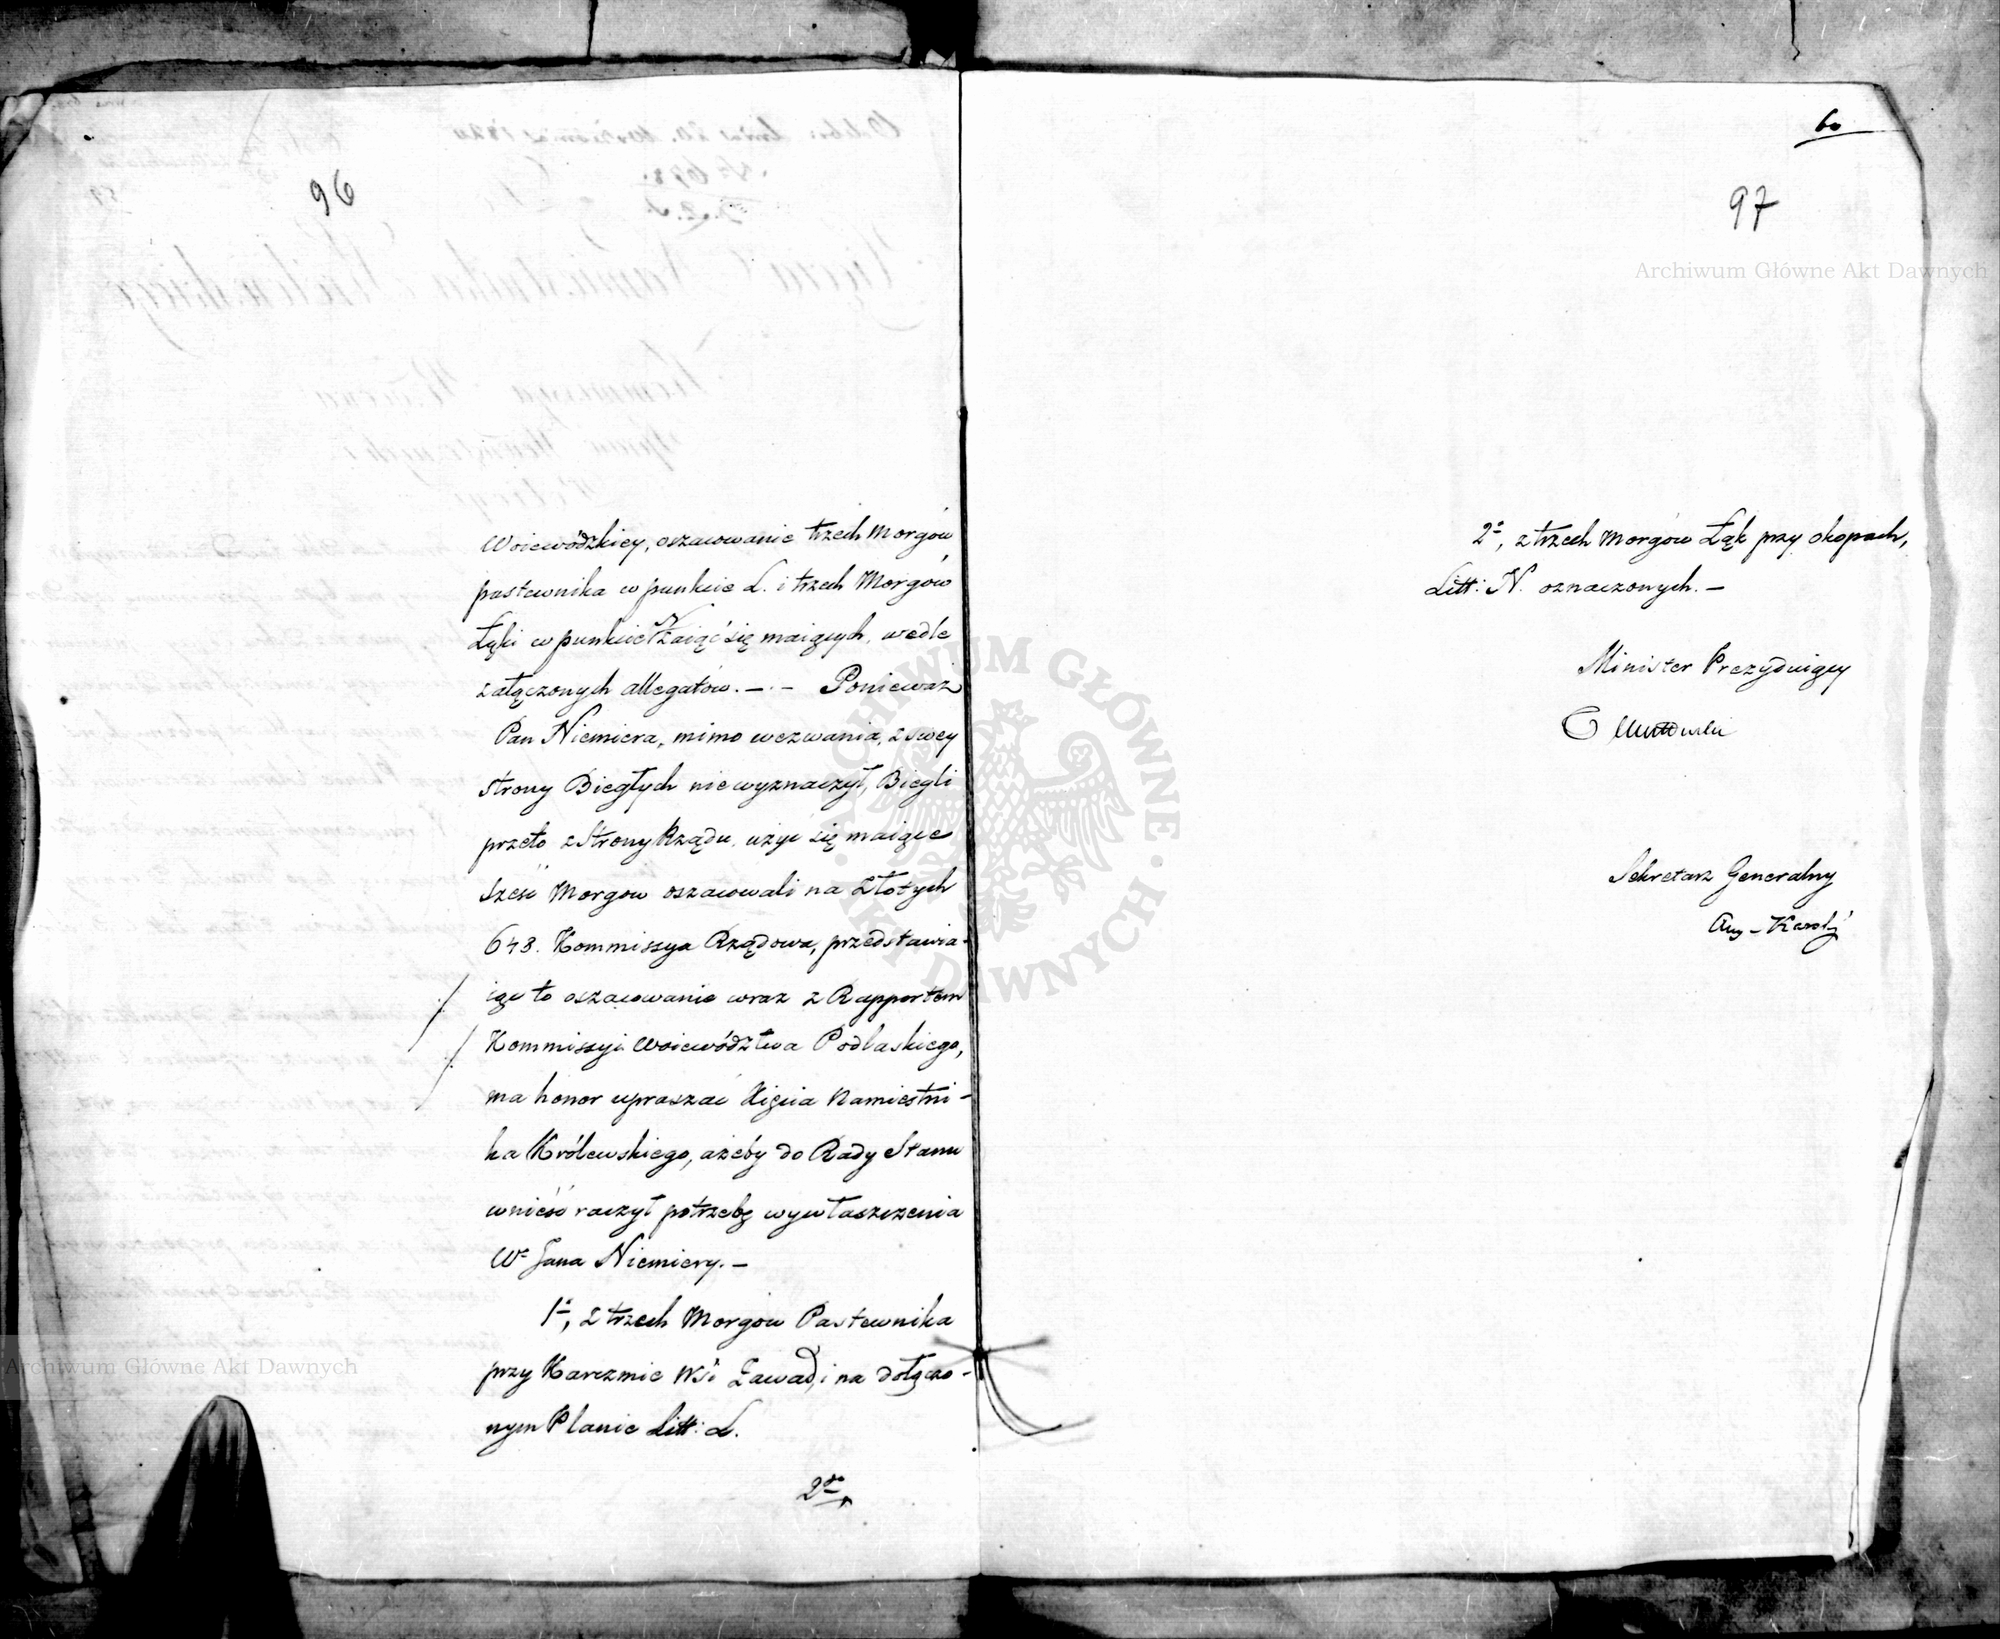 96
Woiewódzkiey, oszacowanie trzech Morgów
pastewnika w punkcie L. i trzech Morgów
Łąki w punkcie N zaiąć się maiących, wedle
załączonych allegatów. — . — Ponieważ
Pan Niemiera, mimo wezwania, z swey
strony Biegłych nie wyznaczył, Biegli
przeto z Strony Rządu, użyć się maiące
sześć Morgow oszacowali na Złotych
648. Kommissya Rządowa, przedstawia-
iąc to oszacowanie wraz z Rapportem
Kommissyi Woiewództwa Podlaskiego,
ma honor upraszać Xięcia Namiestni-
ka Królewskiego, ażeby do Rady Stanu
wnieść raczył potrzebę wywłaszczenia
Wº Jana Niemiery. —
1º, z trzech Morgów Pastewnika
przy Karczmie Wsi Zawad, i na dołączo-
nym Planie Litt: L.
2do,
60
97
2º, z trzech Morgów Łąk przy okopach,
Litt: N. oznaczonych. —
Minister Prezyduiący
Sekretarz Generalny
Aug - Karski
Archiwum Główne Akt Dawnych
Archiwum Główne Akt Dawnych
ARCHIWUM GŁÓWNE
AKT DAWNYCH